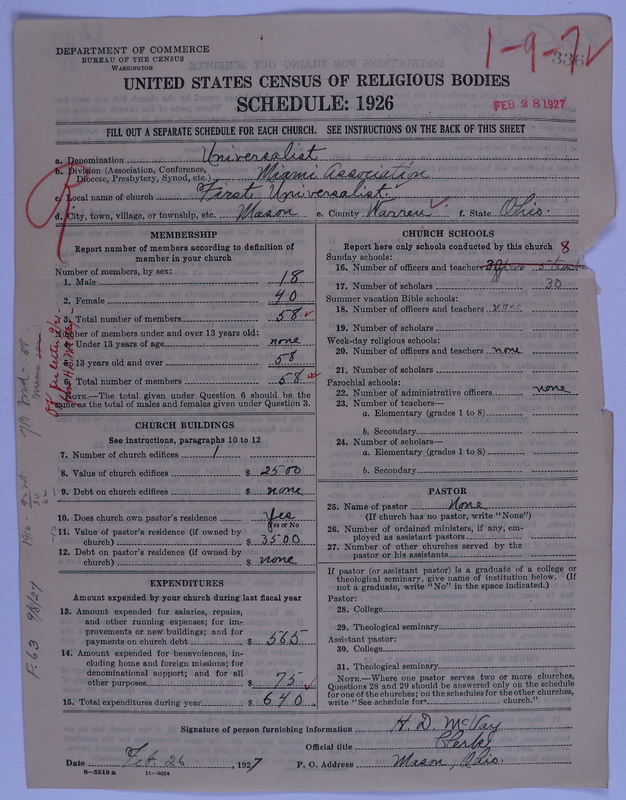 DEPARTMENT OF COMMERCE
BUREAU OF THE CENSUS
WASHINGTON
1-9-7
336
UNITED STATES CENSUS OF RELIGIOUS BODIES
SCHEDULE: 1926
FEB 28 1927
FILL OUT A SEPARATE SCHEDULE FOR EACH CHURCH. SEE INSTRUCTIONS ON THE BACK OF THIS SHEET
a. Denomination Universalist
b. Division (Association, Conference, Diocese, Presbytery, Synod, etc.) Miami Association
c. Local name of church First Universalist.
d. City, town, village, or township, etc. Mason e. County Warren f. State Ohio.
MEMBERSHIP
Report number of members according to definition of member in your church
Number of members, by sex:
1. Male 18
2. Female 40
3. Total number of members 58
Number of members under and over 13 years old:
4. Under 13 years of age none
5. 13 years old and over 58
6. Total number of members 58
NOTE.—The total given under Question 6 should be same as the total of males and females given under Question 3.
CHURCH BUILDINGS
See instructions, paragraphs 10 to 12
7. Number of church edifices 1
8. Value of church edifices $ 2500
9. Debt on church edifices $ none
10. Does church own pastor's residence Yes
Yes or No
11. Value of pastor's residence (if owned by church) $ 3500
12. Debt on pastor's residence (if owned by church) $ none
EXPENDITURES
Amount expended by your church during last fiscal year
13. Amount expended for salaries, repairs, and other running expenses; for improvements or new buildings; and for payments on church debt $ 565
14. Amount expended for benevolences, including home and foreign missions; for denominational support; and for all other purposes $ 75
15. Total expenditures during year $ 640
CHURCH SCHOOLS
Report here only schools conducted by this church
Sunday schools:
8
16. Number of officers and teachers
17. Number of scholars 30
Summer vacation Bible schools:
18. Number of officers and teachers none
19. Number of scholars
Week-day religious schools:
20. Number of officers and teachers none
21. Number of scholars
Parochial schools:
22. Number of administrative officers none
23. Number of teachers—
a. Elementary (grades 1 to 8)
b. Secondary
24. Number of scholars—
a. Elementary (grades 1 to 8)
b. Secondary
PASTOR
25. Name of pastor None
(If church has no pastor, write "None")
26. Number of ordained ministers, if any, employed as assistant pastors
27. Number of other churches served by the pastor or his assistants
If pastor (or assistant pastor) is a graduate of a college or theological seminary, give name of institution below. (If not a graduate, write "No" in the space indicated.)
Pastor:
28. College
29. Theological seminary
Assistant pastor:
30. College
31. Theological seminary
NOTE.—Where one pastor serves two or more churches, Questions 28 and 29 should be answered only on the schedule for one of the churches; on the schedules for the other churches, write "See schedule for church."
Signature of person furnishing information H. D. McVay
Official title Clerk
Date Feb. 26, 1927 P. O. Address Mason, Ohio.
8—5518 a 11—9024
F. 63 9/8/27